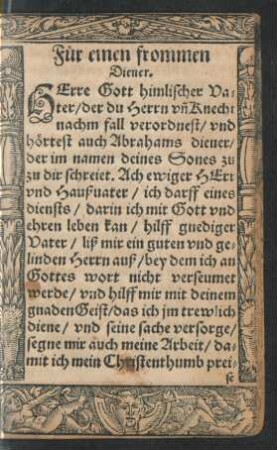 Für einen frommen
Diener.
HErre Gott himlischer Va-
ter/der du Herrn vñ Knecht
nachm fall verordnest/ vnd
hörtest auch Abrahams diener/
der im namen deines Sones zu
zu dir schreiet. Ach ewiger HErr
vnd Haußuater / ich darff eines
diensts / darin ich mit Gott vnd
ehren leben kan / hilff gnediger
Vater / liß mir ein guten vnd ge-
linden Herrn auß / bey dem ich an
Gottes wort nicht verseumet
werde / vnd hilff mir mit deinem
gnaden Geist/das ich jm trewlich
diene / vnd seine sache versorge/
segne mir auch meine Arbeit/ da-
mit ich mein Christenthumb prei-
se